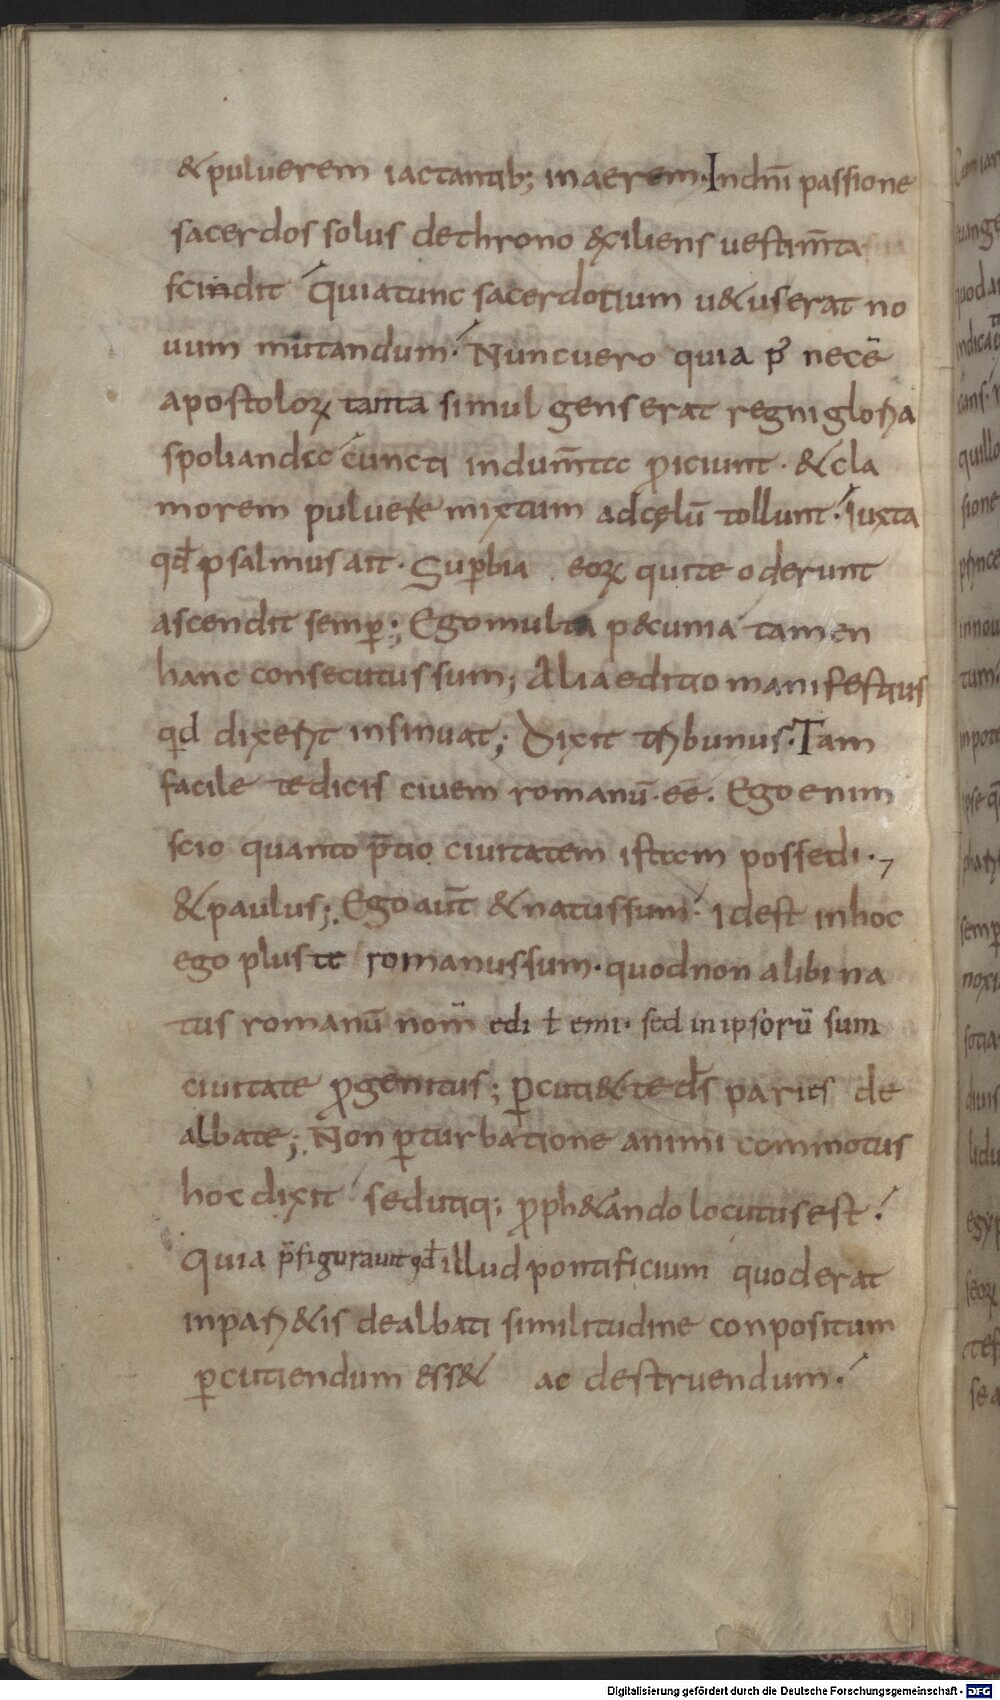 &puluerem iactantib; inaerem· Indn̄i passione
sacerdos solus dethrono &xiliens uestim̄ta sua
scindit Quiatunc sacerdotium u&userat no
uum mutandum· Nuncuero quia p̄ necē
apostoloꝝ tanta simul genserat regni gloria
spolianda cuncti indum̄ta ꝓiciunt· &cla
morem puluere mixtum adcęlū tollunt· Iuxta
qđ psalmus ait· Suꝑbia eoꝝ quite oderunt
ascendit semꝑ; Egomulta p&cunia tamen
hanc consecutus sum; Alia editio manifestius
qd dixerit insinuat; Dixit tribunus· Tam
facile te dicis ciuem romanū· eē· Ego enim
scio quanto p̄tio ciuitatem istam possedi·,
&paulus; Ego aūt &natus sum· Idest inhoc
ego plus te romanus sum· quod non alibi na
tus romanū nom̄ edi ł emi· sed in ipsorū sum
ciuitate ꝓgenitus; ꝑcuti& te ds̄ paries de
albate; Non ꝑturbatione animi commotus
hoc dixit sed utiq; ꝓph&ando locutus est·
Quia p̄figurauit qđ illud pontificium quod erat
inpari&is dealbati similitudine conpositum
ꝑcutiendum ess& ac destruendum·
Digitalisierung gefördert durch die Deutsche Forschungsgemeinschaft - DFG